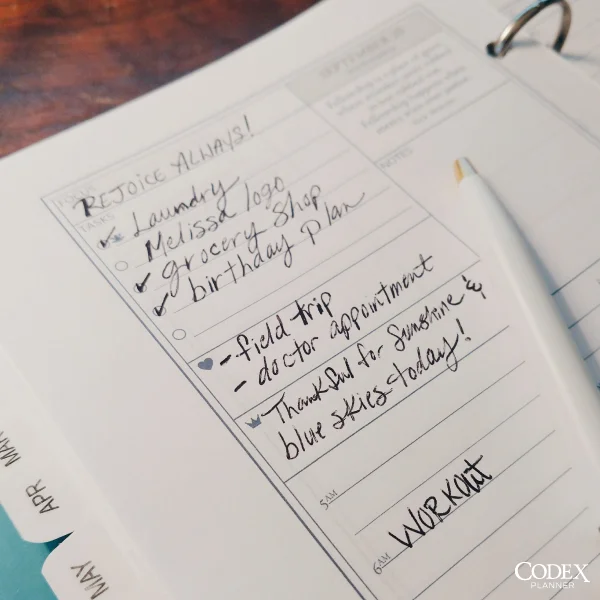 FOCUS
REJOICE ALWAYS!
TASKS
Laundry
Melissa logo
grocery Shop
birthday plan
- field trip
- doctor appointment
Thankful for Sunshine &
blue skies today!
5AM
6AM WORKOUT
NOTES
SEPTEMBER
MAR
APR
MAY
CODEX
PLANNER